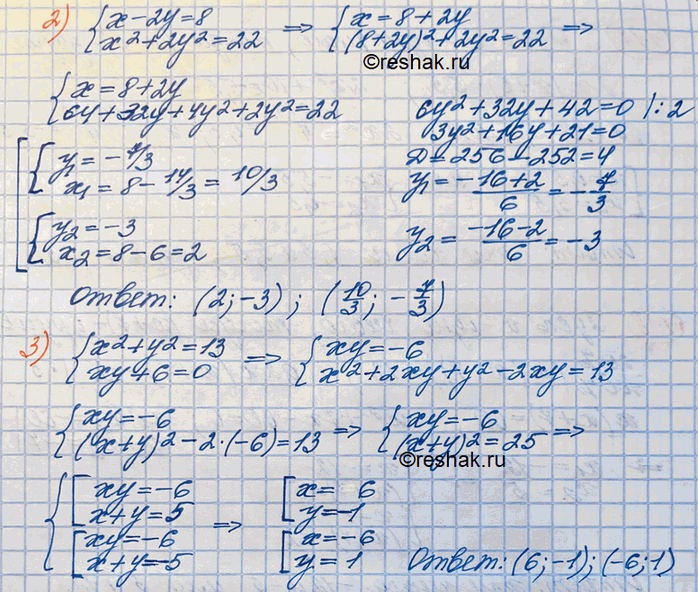 2) {x-2y=8 => {x=8+2y
x²+2y²=22 (8+2y)²+2y²=22
©reshak.ru
{x=8+2y
64+32y+4y²+2y²=22
6y²+32y+42=0 |:2
3y²+16y+21=0
D=256-252=4
y₁=(-16+2)/6=-7/3
y₂=(-16-2)/6=-3
[{y₁=-7/3
x₁=8-14/3=10/3
{y₂=-3
x₂=8-6=2
Ответ: (2;-3); (10/3; -7/3)
3) {x²+y²=13 => {xy=-6
xy+6=0 x²+2xy+y²-2xy=13
{xy=-6 => {xy=-6 =>
(x+y)²-2·(-6)=13 (x+y)²=25
©reshak.ru
{[xy=-6 => [x=6
x+y=5 y=-1
[xy=-6 [x=-6
x+y=-5 y=1
Ответ: (6;-1); (-6;1)